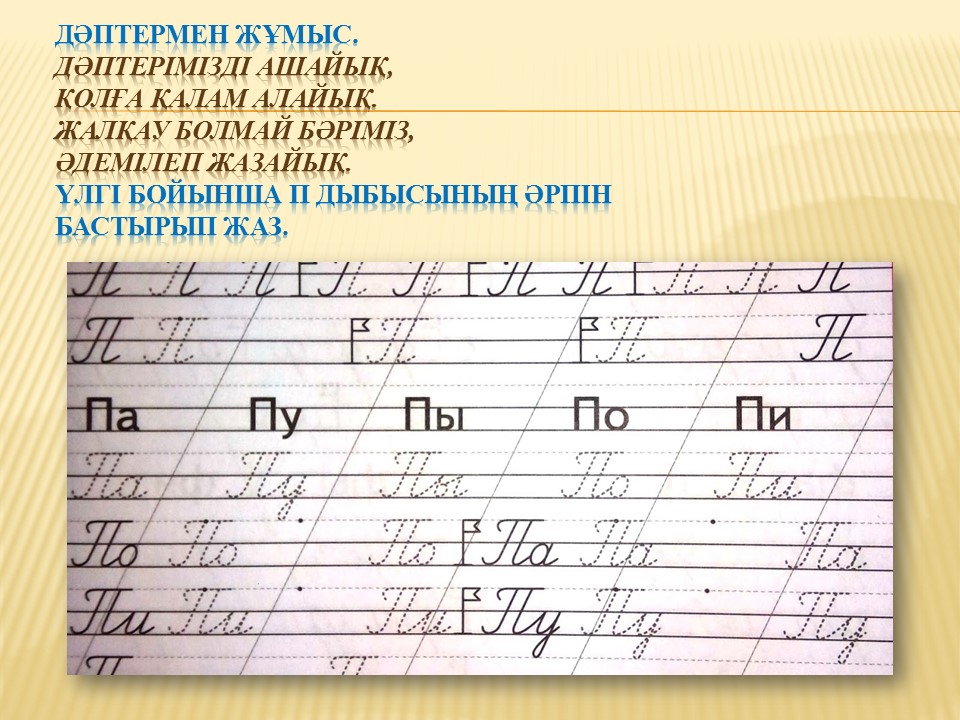 ДӘПТЕРМЕН ЖҰМЫС.
ДӘПТЕРІМІЗДІ АШАЙЫҚ,
ҚОЛҒА ҚАЛАМ АЛАЙЫҚ.
ЖАЛҚАУ БОЛМАЙ БӘРІМІЗ,
ӘДЕМІЛЕП ЖАЗАЙЫҚ.
ҮЛГІ БОЙЫНША П ДЫБЫСЫНЫҢ ӘРПІН
БАСТЫРЫП ЖАЗ.
П П П П П П П П П П
П П П П П
Па Пу Пы По Пи
Па Пу Пы По Пи
По По По Па Па Па
Пи Пи Пи Пу Пу Пу